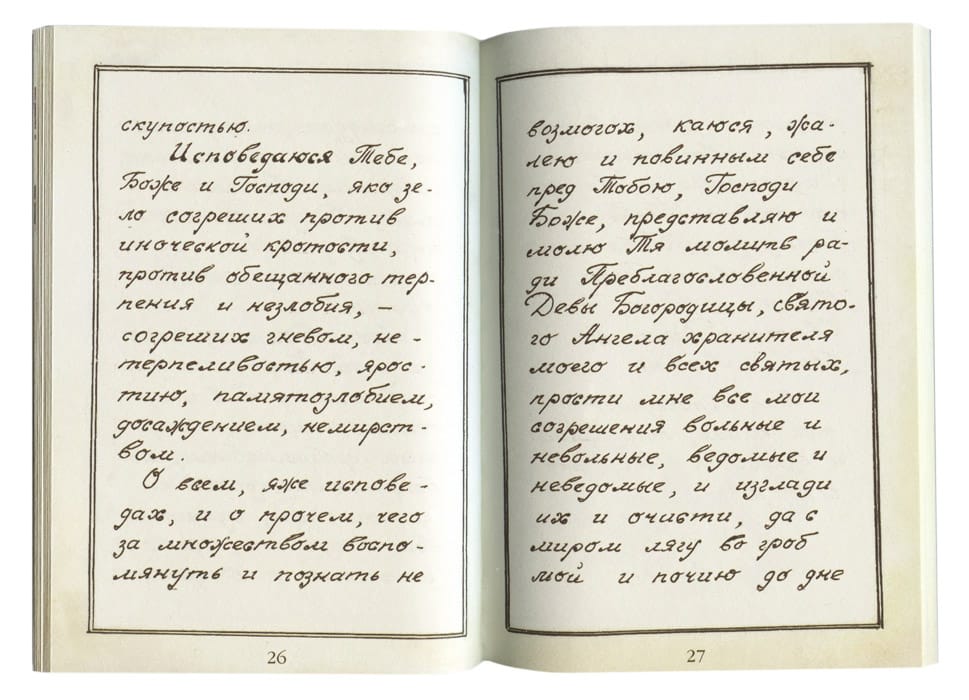 скупостью.
Исповедаюся Тебе,
Боже и Господи, яко зе-
ло согреших против
иноческой кротости,
против обещанного тер-
пения и незлобия, —
согреших гневом, не-
терпеливостью, ярос-
тию, памятозлобием,
досаждением, немирст-
вом.
О всем, яже испове-
дах, и о прочем, чего
за множеством воспо-
мянуть и познать не
26
возмогох, каюся, жа-
лею и повинным себе
пред Тобою, Господи
Боже, представляю и
молю Тя молить ра-
ди Преблагословенной
Девы Богородицы, свято-
го Ангела хранителя
моего и всех святых,
прости мне все мои
согрешения вольные и
невольные, ведомые и
неведомые, и изглади
их и очисти, да с
миром лягу во гроб
мой и почию до дне
27